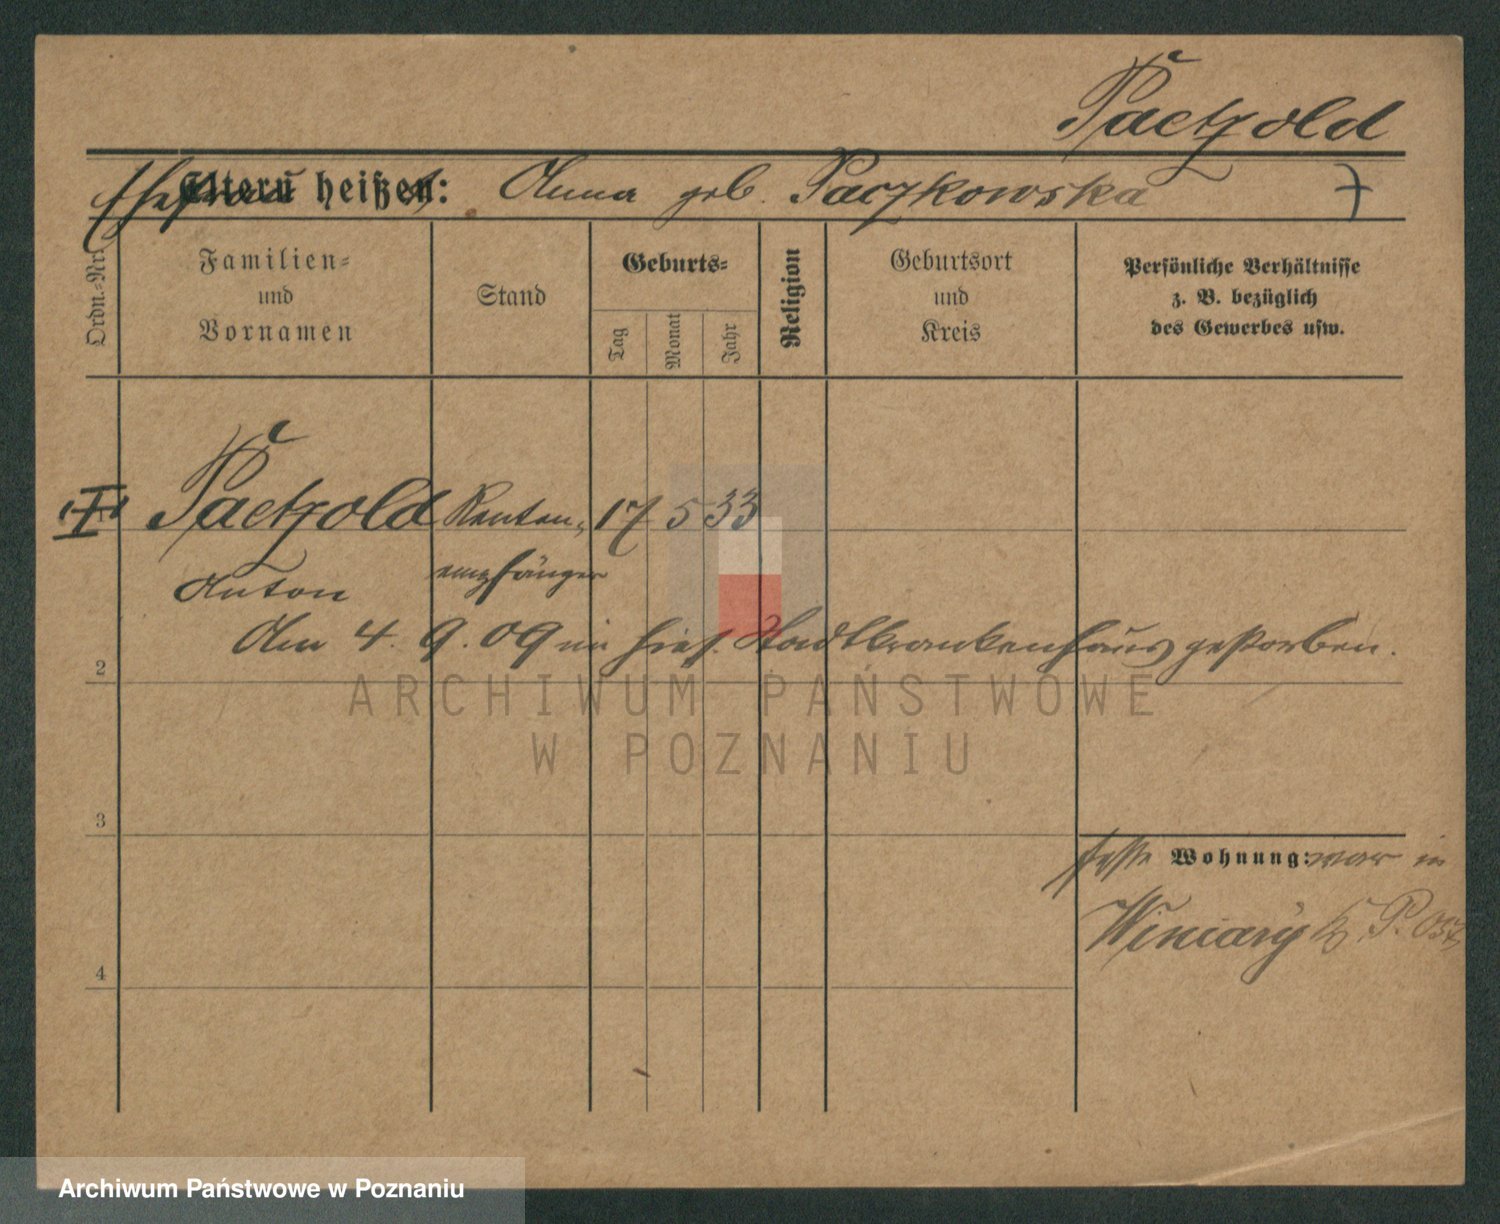 Paetzold
Ehefrau Eltern heißen: Anna geb. Paczkowska
Ordn.-Nr.
Familien-
und
Vornamen
Stand
Geburts-
Tag
Monat
Jahr
Religion
Geburtsort
und
Kreis
Persönliche Verhältnisse
z. B. bezüglich
des Gewerbes usw.
Paetzold Renten- 17 5 33
Anton empfänger
Am 4. 9. 09 im hies. Stadtkrankenhaus gestorben.
2
ARCHIWUM PAŃSTWOWE
W POZNANIU
3
Wohnung: war in
Winiary P. Ost
4
Archiwum Państwowe w Poznaniu